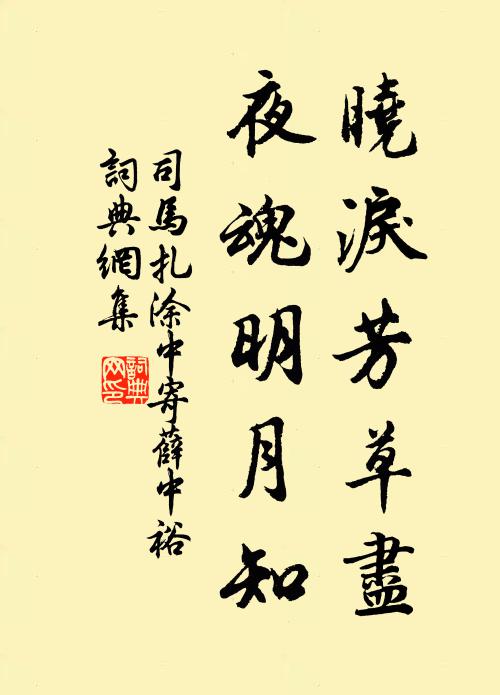 曉淚芳草盡
夜魂明月知
司馬扎涂中寄薛中裕
詞典網集
詞典網印